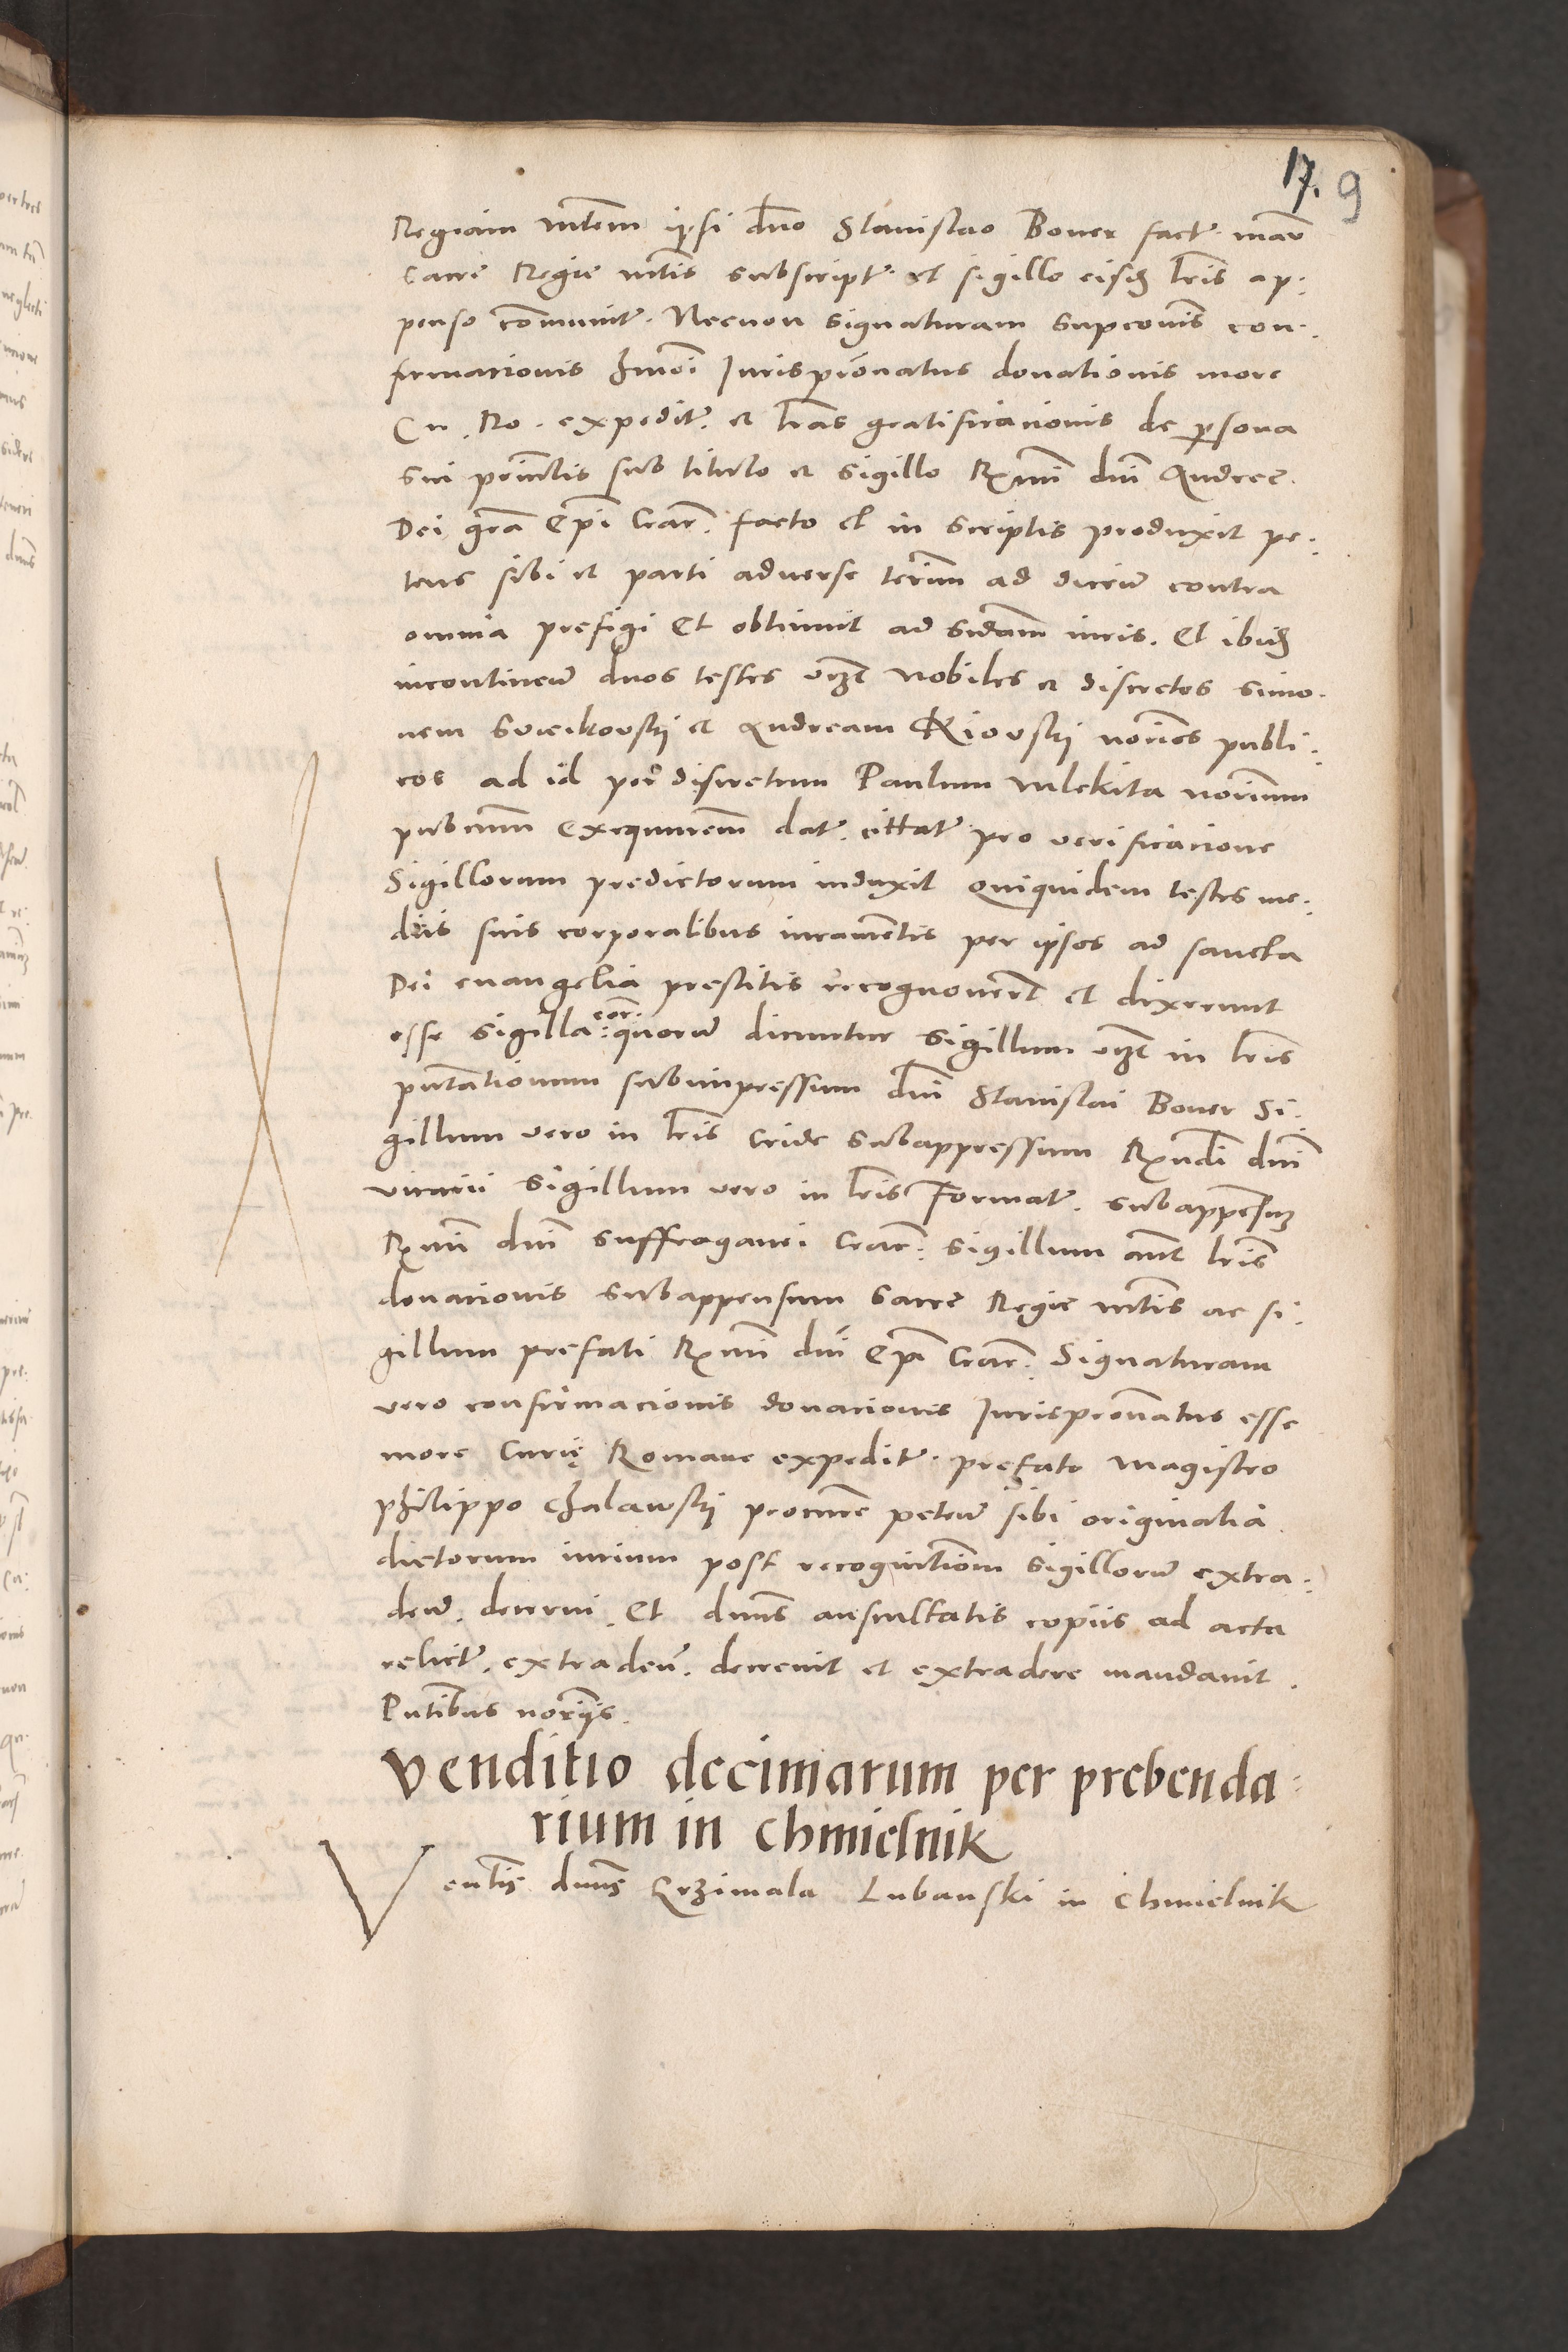 17. 9
Regiam mtem ipsi dno Stanislao Boner fact. man
Sacre Regie mtis subscript. et sigillo eisdem lris ap:
penso communit. Necnon signaturam supconis con:
firmacionis hmoi Jurispronatus donationis more
Cu. Ro. expedit. et lras gratificacionis de persona
sui prinlis sub titulo et sigillo Rxmi dni Andree
Dei gra Epi Crac. facto et in scriptis produxit pe:
tens sibi et parti adverse terim ad dicen contra
omnia prefigi Et obtinuit ad sidam iuris. Et ibidem
incontinen duos testes vizt Nobiles et discretos Simo:
nem Swieikowskij et Andream Kiowskij norios publi:
cos ad id per discretum Paulum Mlekita norium
pubcum exequutem dat. cittat. pro verificacione
Sigillorum predictorum induxit Quiquidem testes me:
diis suis corporalibus iuramentis per ipsos ad sancta
Dei euangelia prestitis recognouerut et dixerunt
esse sigilla eor. quorum dicuntur Sigillum vizt in lris
putationum subimpressum dni Stanislai Boner Si:
gillum vero in lris Cride subappressum Rxndi dni
vicarii Sigillum vero in lris Format. subappensum
Rxmi dni suffraganei Crac. sigillum aut lris
donacionis subappensum Sacre Regie mtis ac si:
gillum prefati Rxmi dni Epi Crac. Signaturam
vero confirmacionis donacionis Jurispronatus esse
more Curie Romane expedit. prefato Magistro
philippo Chalawskij procure peten sibi originalia
dictorum iurium post recognitiom sigillorum extra:
den. decerni. Et dnus auscultatis copiis ad acta
relict. extraden. decrevit et extradere mandavit.
Pntibus noriis.
Venditio decimarum per prebenda:
rium in Chmielnik
Venlis dnus Crzimala Lubanski in Chmielnik